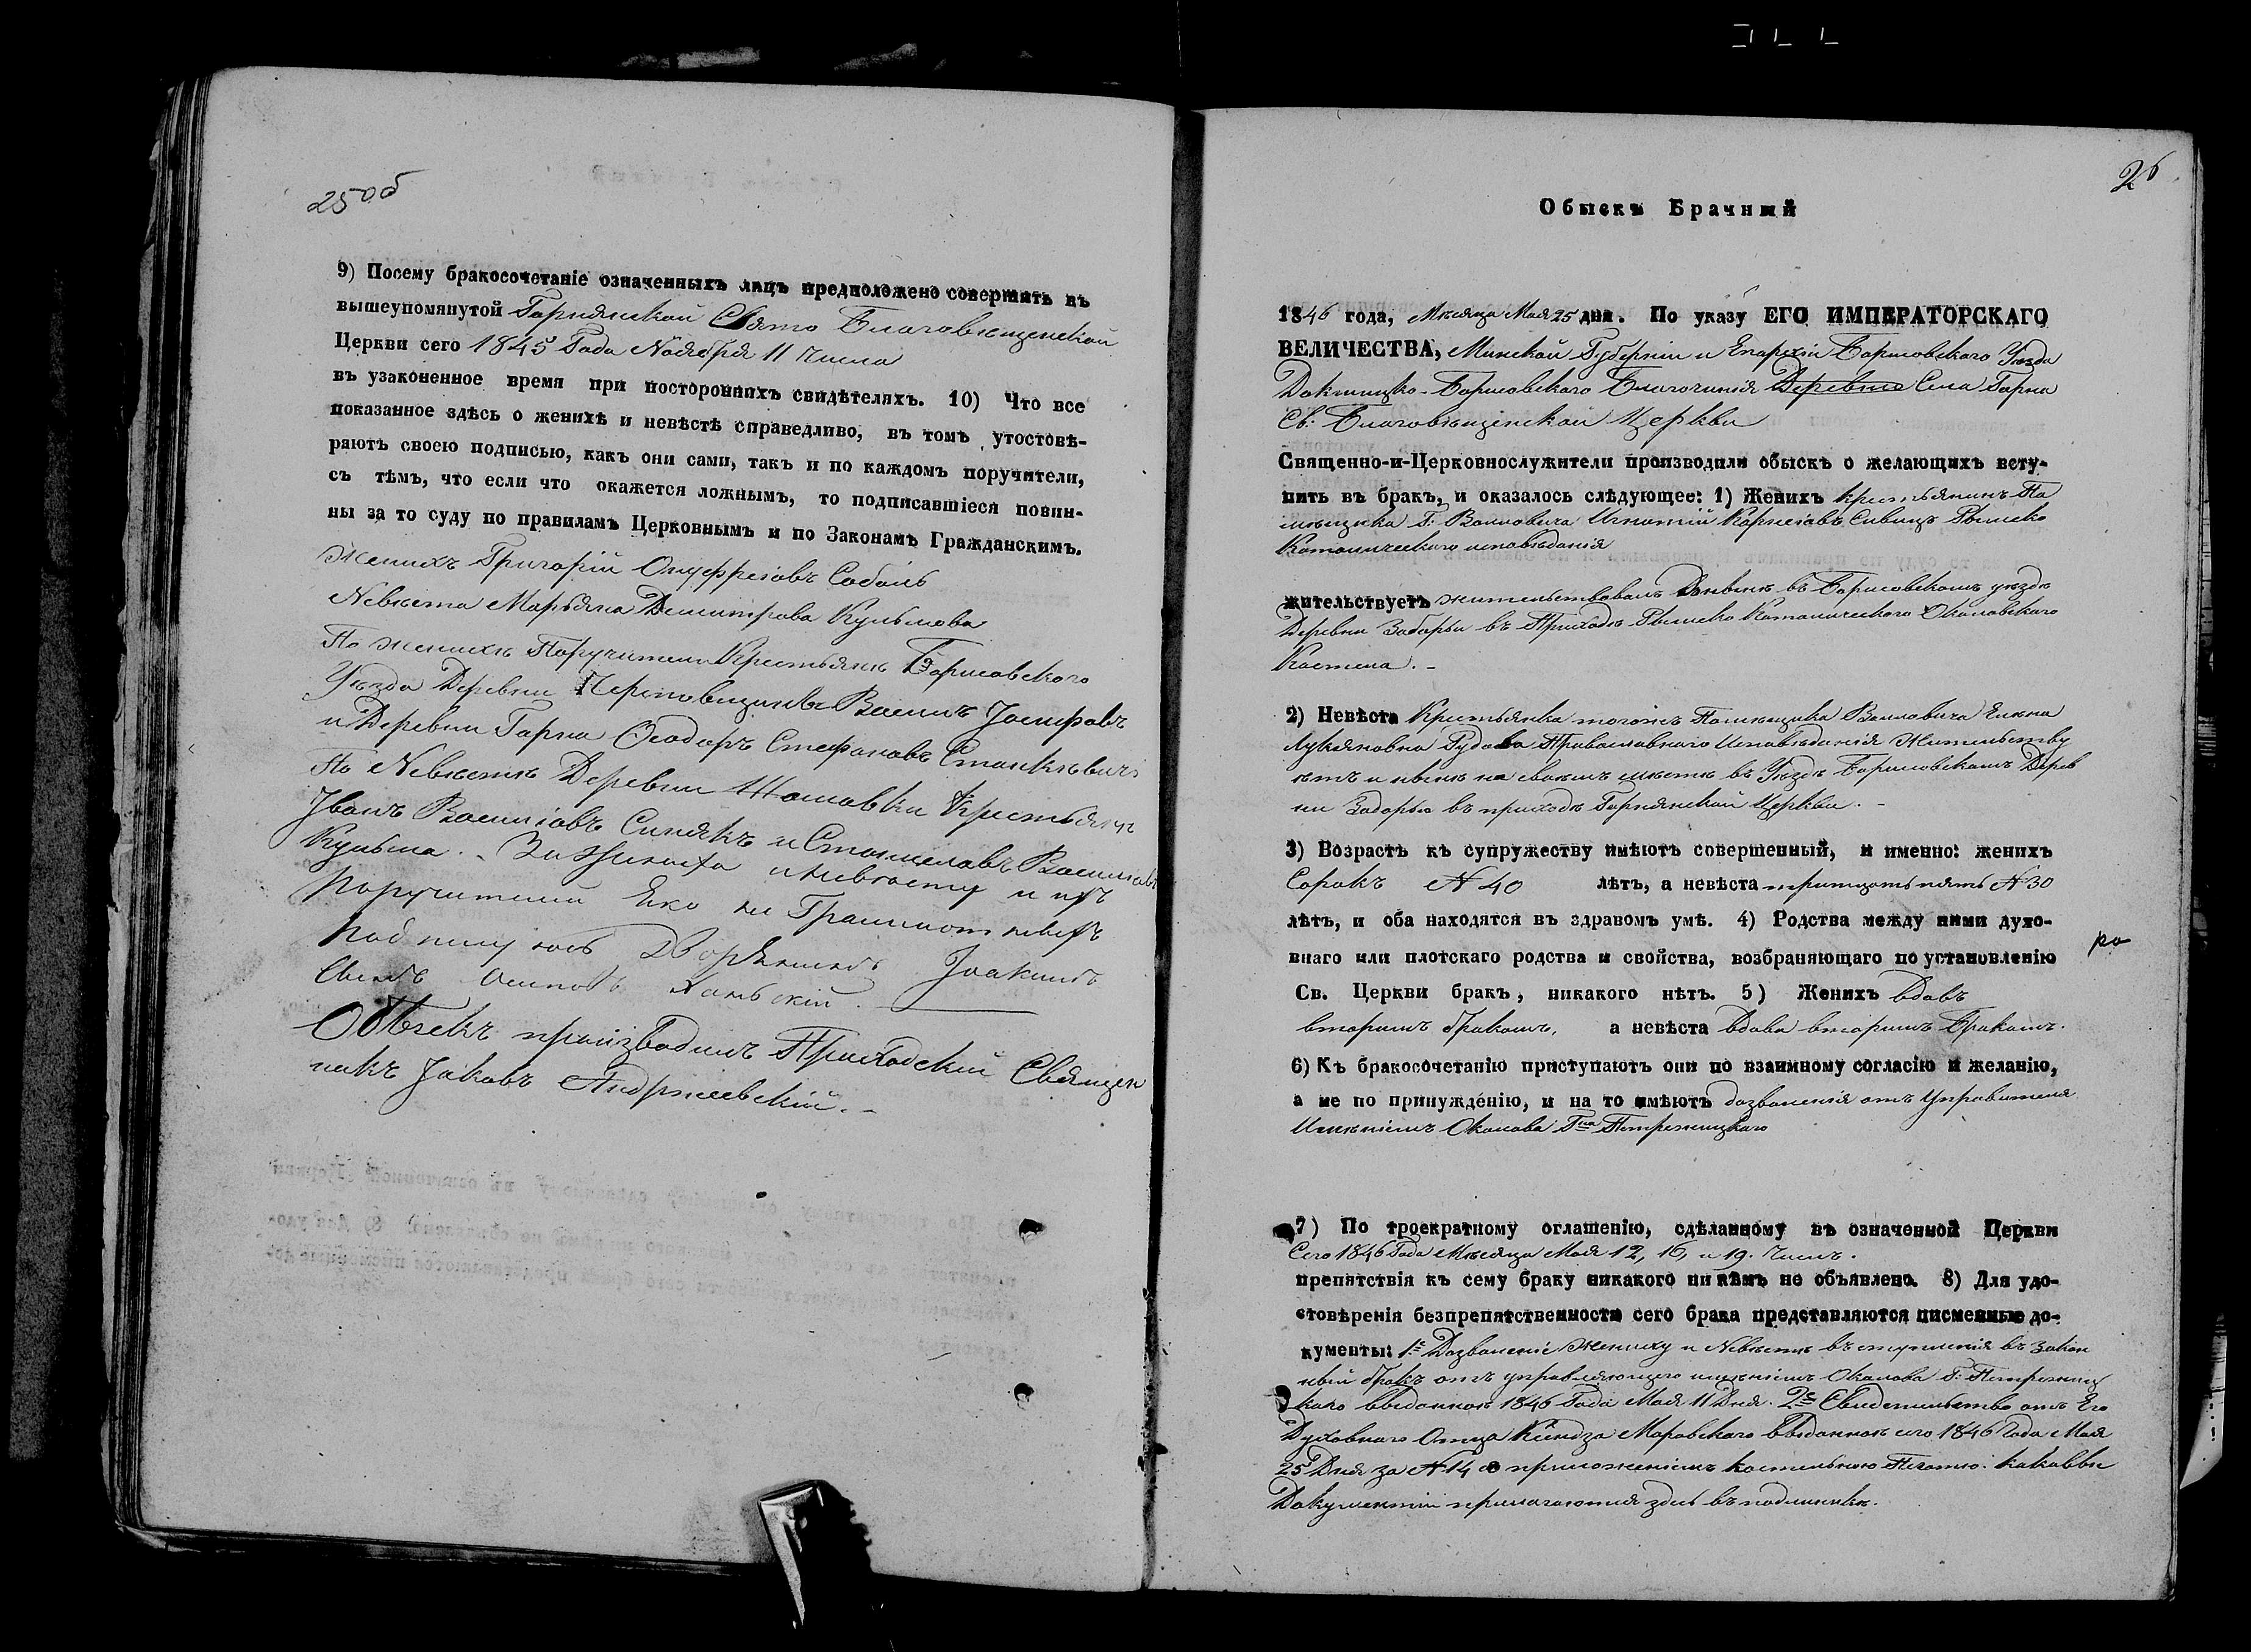 25об
9) Посему бракосочетаніе означенныхъ лицъ предположено совершить въ
вышеупомянутой Горнянской Свято Благовѣщенской
Церкви сего 1845 Года Ноября 11 числа
въ узаконенное время при постороннихъ свидѣтеляхъ. 10) Что все
показанное здѣсь о женихѣ и невѣстѣ справедливо, въ томъ утостовѣ-
ряютъ своею подписью, какъ они сами, такъ и по каждомъ поручители,
съ тѣмъ, что если что окажется ложнымъ, то подписавшіеся повин-
ны за то суду по правиламъ Церковнымъ и по Законамъ Гражданскимъ.
Женихъ Григорій Онуфреіовъ Соболь
Невѣста Марьяна Демитрова Кульмова
По женихѣ Поручители Крестьяне Борисовского
Уѣзда Деревни Васили Іосифовъ
и Деревни Горна Ѳеодоръ Стефановъ Станкѣвичъ
По Невѣстѣ Деревни Крестьяне
Іванъ Василіовъ Синякъ и Станиславъ Василіовъ
Кульма. За Жениха и Невѣсту и ихъ
Поручители Еко не Граммотныхъ
Подпісуюсь Дворянинъ Іоакимъ
Осиповъ
Обыскъ производилъ Приходскій Священ
никъ Іаковъ Андржеевскій.
26
Обыскъ Брачный
1846 года, Мѣсяца Мая 25 дня. По указу ЕГО ИМПЕРАТОРСКАГО
ВЕЛИЧЕСТВА, Минской Губерніи и Епархіи Борисовского Уѣзда
Докшицко-Борисовского Благочинія Деревни Села Горна
Св: Благовѣщенской Церкви
Священно-и-Церковнослужители производили обыскъ о желающихъ всту-
пить въ бракъ, и оказалось слѣдующее: 1) Женихъ крестьянинъ По
мѣщика Г: Воловича Игнатій Карнеіовъ Сивецъ Рымско
Католическаго исповѣданія
жительствуетъ жительствовалъ Донынѣ въ Борисовскомъ уѣздѣ
Деревни Заборьи въ Приходѣ Рымско Католического Околовского
Костела.
2) Невѣста Крестьянка тогожъ Помѣщика Воловича Елена
Лукяновна Рудова Православнаго Исповѣданія Жительству
етъ и нынѣ на своемъ мѣстѣ въ Уѣздѣ Борисовскомъ Дерев
ни Заборью въ приходѣ Горнянской Церкви.
3) Возрастъ къ супружеству имѣютъ совершенный, и именно: женихъ
Сорокъ № 40 лѣтъ, а невѣста тритцоть пять № 30
лѣтъ, и оба находятся въ здравомъ умѣ. 4) Родства между ними духо-
внаго или плотскаго родства и свойства, возбраняющаго по установленію
Св. Церкви бракъ, никакого нѣтъ. 5) Женихъ вдовъ
вторимъ бракомъ, а невѣста вдова вторимъ Бракомъ.
6) Къ бракосочетанію приступаютъ они по взаимному согласію и желанію,
а не по принужденію, и на то имѣютъ дозволенія отъ Управителя
Имѣніемъ Околова Гна Петрежицкаго
7) По троекратному оглашенію, сдѣланному въ означенной Церкви
Сего 1846 Года Мѣсяца Мая 12, 16, и 19. Числъ.
препятствія къ сему браку никакого ни кѣмъ не объявлено. 8) Для удо-
стовѣренія безпрепятственности сего брака представляются писменные до-
кументы: 1е Дозволеніе Жениху и Невѣстѣ въ ступленія въ закон
ный бракъ отъ управляющего имѣніемъ Околова Г: Петрежиц
каго выданное 1846 Года Мая 11 Дня. 2е Свидетельство отъ Его
Духовнаго Отца Ксіндза Маровского выданное сего 1846 Года Мая
25 Дня за № 14 съ приложеніемъ костельною Печатю: каковые
Документы прилагаются здесь въ подлинникѣ.